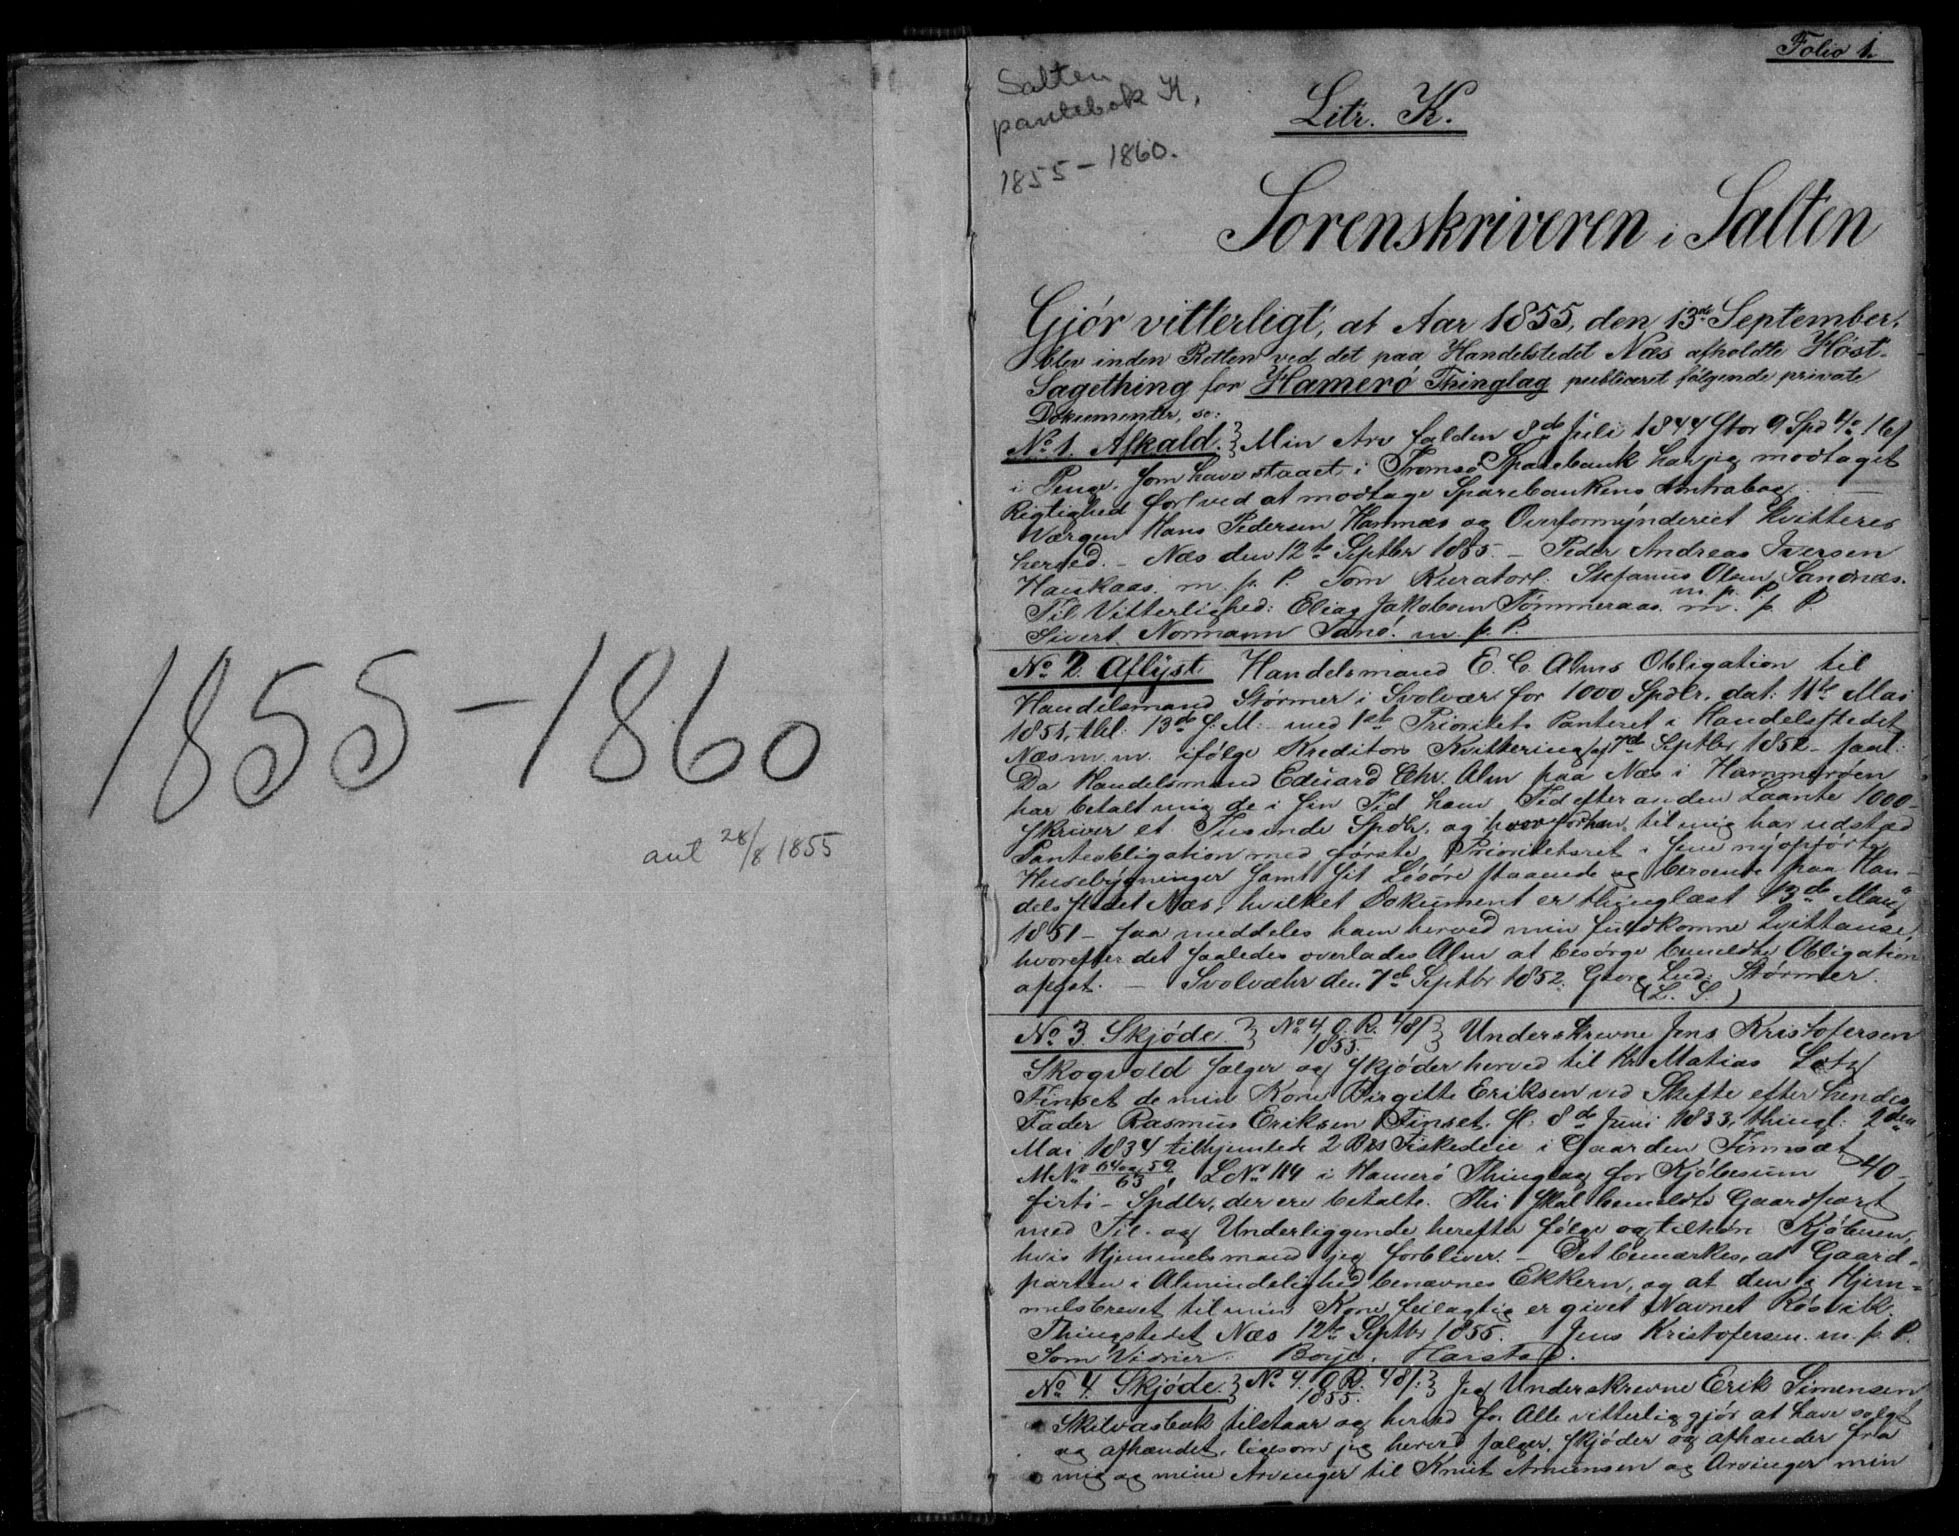 1855 – 1860
ant 28/8 1855
Folio 1.
Salten
pantebok K,
1855 – 1860.
Litr. K.
Sorenskriveren i Salten
Gjör vitterligt, at Aar 1855, den 13de September,
blev inden Retten ved det paa Handelstedet Næs afholdte Höst-
Sagething for Hamerö Thinglag publiceret fölgende private
Dokumenter, so:
No 1. Afkald. Min Arv falden 8de Juli 1844 stor 9 Spd
i Penge, som have staaet i Tromsö Sparebank har jeg modtaget
Rigtighed for ved at modtage Sparebankens Kontrabog.
Værgen Hans Pedersen Hamnæs og Overformynderiet kvitteres
herved. – Næs den 12te Septbr 1855. – Peder Andreas Iversen
Haukaas. m. p. P. Som Kurator: Stefanus Olsen Sandnæs.
m. p. P.
Til Vitterlighed: Elias Jakobsen Tömmeraas. m. p. P
Sivert Normann Tanö. m. p. P.
No 2. Aflyst. Handelsmand E. C. Alms Obligation til
Handelsmand Störmer i Svolvær for 1000 Spdlr. dat: 11te Mai
1851, thl: 13de s. M: med 1ste Prioritets Panteret i Handelsstedet
Næs m. m. ifölge Kreditors Kvittering af 7de Septbr 1852 – saal:
Da Handelsmand Eduard Chr. Alm paa Næs i Hammeröen
har betalt mig de i sin Tid ham Tid efter anden Laante 1000 –
skriver et Tusinde Spdlr, og hvorfor han til mig har udstæd
Panteobligation med förste Prioritetsret i sine nyopförte
Husebygninger samt sit Lösöre staaende og beroende paa Han-
delsstedet Næs, hvilket Dokument er thinglæst 13de Mai
1851 – saa meddeles ham herved min fuldkomne Qvittanse,
hvorefter det saaledes overlades Alm at besörge bemeldte Obligation
aflyst. – Svolvæhr den 7de Septbr 1852. Georg Lud: Störmer.
(L. S.)
No 3. Skjöde. No 4. O. R. 48/ 1855. Underskrevne Jens Kristofersen
Skogvold sælger og skjöder herved til Hr. Matias
Finset de min Kone Birgitte Eriksen ved Skifte efter hendes
Fader Rasmus Eriksen Finset, sl: 8de Juni 1833, thingl: 2den
Mai 1834 tilhjemlede 2 Bds Fiskeleie i Gaarden Finnsæt
M No 64 og 59/63, L No 114 i Hamerö Thinglag for Kjöbesum 40 –
firti – Spdlr, der ere betalte. Thi skal bemeldte Gaardpart
med Til- og Underliggende herefter fölge og tilhöre Kjöberen,
hvis Hjemmelsmand jeg forbliver. – Det bemærkes, at Gaard-
parten i Almindelighed benævnes Ekkern, og at den i Hjem-
melsbrevet til min Kone feilagtig er givet Navnet Rösvik.
Thingstedet Næs 12te Septbr 1855. Jens Kristofersen. m. p. P.
Som Vidner: Borje. Harstad.
No 4. Skjöde. No 4. O. R. 48/: 1855. Jeg Underskrevne Erik Simensen
Skilvasbak tilstaar og herved for Alle vitterlig gjör at have solgt
og afhændet, ligesom jeg herved sælger, skjöder og afhænder fra
mig og mine Arvinger til Knut Amunsen og Arvinger min